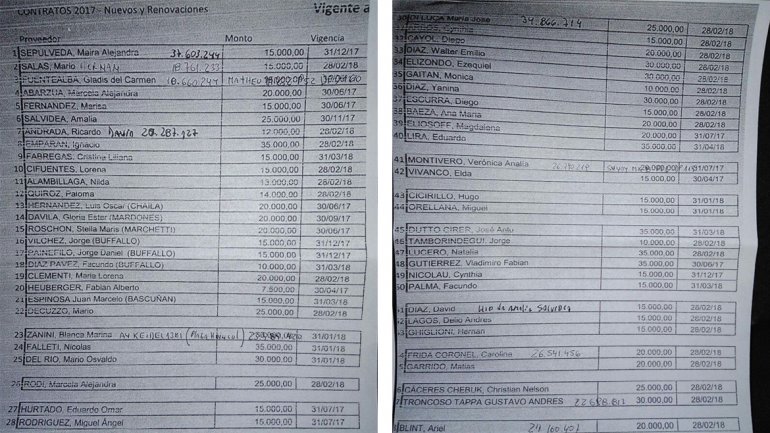 CONTRATOS 2017 - Nuevos y Renovaciones Vigente a
Proveedor Monto Vigencia
1 SEPULVEDA, Maira Alejandra 37.603.244 15.000,00 31/12/17
2 SALAS, Mario HERNAN 18.761.233 15.000,00 28/02/18
3 FUENTEALBA, Gladis del Carmen 18.660.244
4 ABARZUA, Marcela Alejandra 20.000,00 30/06/17
5 FERNANDEZ, Marisa 15.000,00 30/06/17
6 SALVIDEA, Amalia 25.000,00 30/11/17
7 ANDRADA, Ricardo DAVID 20.287.127 12.000,00 28/02/18
8 EMPARAN, Ignacio 35.000,00 28/02/18
9 FABREGAS, Cristina Liliana 15.000,00 31/03/18
10 CIFUENTES, Lorena 15.000,00 28/02/18
11 ALAMBILLAGA, Nilda 13.000,00 28/02/18
12 QUIROZ, Paloma 14.000,00 28/02/18
13 HERNANDEZ, Luis Oscar (CHAILA) 20.000,00 30/06/17
14 DAVILA, Gloria Ester (MARDONES) 20.000,00 30/09/17
15 ROSCHON, Stella Maris (MARCHETTI) 20.000,00 30/06/17
16 VILCHEZ, Jorge (BUFFALO) 15.000,00 31/12/17
17 PAINEFILO, Jorge Daniel (BUFFALO) 15.000,00 31/12/17
18 DIAZ PAVEZ, Facundo (BUFFALO) 10.000,00 31/03/18
19 CLEMENTI, Maria Lorena 20.000,00 28/02/18
20 HEUBERGER, Fabian Alberto 7.500,00 30/04/17
21 ESPINOSA Juan Marcelo (BASCUÑAN) 15.000,00 31/03/18
22 DECUZZO, Mario 25.000,00 28/02/18
23 ZANINI, Blanca Marina 31/01/18
24 FALLETI, Nicolas 35.000,00 31/01/18
25 DEL RIO, Mario Osvaldo 30.000,00 31/01/18
26 RODI, Marcela Alejandra 25.000,00 28/02/18
27 HURTADO, Eduardo Omar 15.000,00 31/07/17
28 RODRIGUEZ, Miguel Ángel 15.000,00 31/07/17
30 DELUCA Maria José 34.866.714 25.000,00 28/02/18
15.000,00 28/02/18
32 CAYOL, Diego 15.000,00 28/02/18
33 DIAZ, Walter Emilio 20.000,00 28/02/18
34 ELIZONDO, Ezequiel 30.000,00 28/02/18
35 GAITAN, Monica 30.000,00 28/02/18
36 DIAZ, Yanina 10.000,00 28/02/18
37 ESCURRA, Diego 30.000,00 28/02/18
38 BAEZA, Ana Maria 15.000,00 28/02/18
39 ELIOSOFF, Magdalena 20.000,00 28/02/18
40 LIRA, Eduardo 20.000,00 31/07/17
35.000,00 31/04/18
41 MONTIVERO, Verónica Analia 31/07/17
42 VIVANCO, Elda 15.000,00 30/04/17
43 CICIRILLO, Hugo 15.000,00 31/01/18
44 ORELLANA, Miguel 15.000,00 31/01/18
45 DUTTO CIRER, José Antu 35.000,00 31/03/18
46 TAMBORINDEGUI, Jorge 10.000,00 28/02/18
47 LUCERO, Natalia 35.000,00 28/02/18
48 GUTIERREZ, Vladimiro Fabian 35.000,00 30/06/17
49 NICOLAU, Cynthia 15.000,00 31/12/17
50 PALMA, Facundo 15.000,00 31/03/18
51 DIAZ, David Hijo de Amalia Salvidea 15.000,00 28/02/18
52 LAGOS, Delio Andres 15.000,00 28/02/18
53 GHIGLIONI, Hernan 15.000,00 28/02/18
4 FRIDA CORONEL, Caroline 26.541.456 20.000,00 28/02/18
5 GARRIDO, Matias 20.000,00 28/02/18
6 CACERES CHEBUK, Christian Nelson 25.000,00 28/02/18
7 TRONCOSO TAPPA GUSTAVO ANDRES 30.000,00 28/02/18
8 BLINT, Ariel 29.100.402 20.000,00 28/02/18